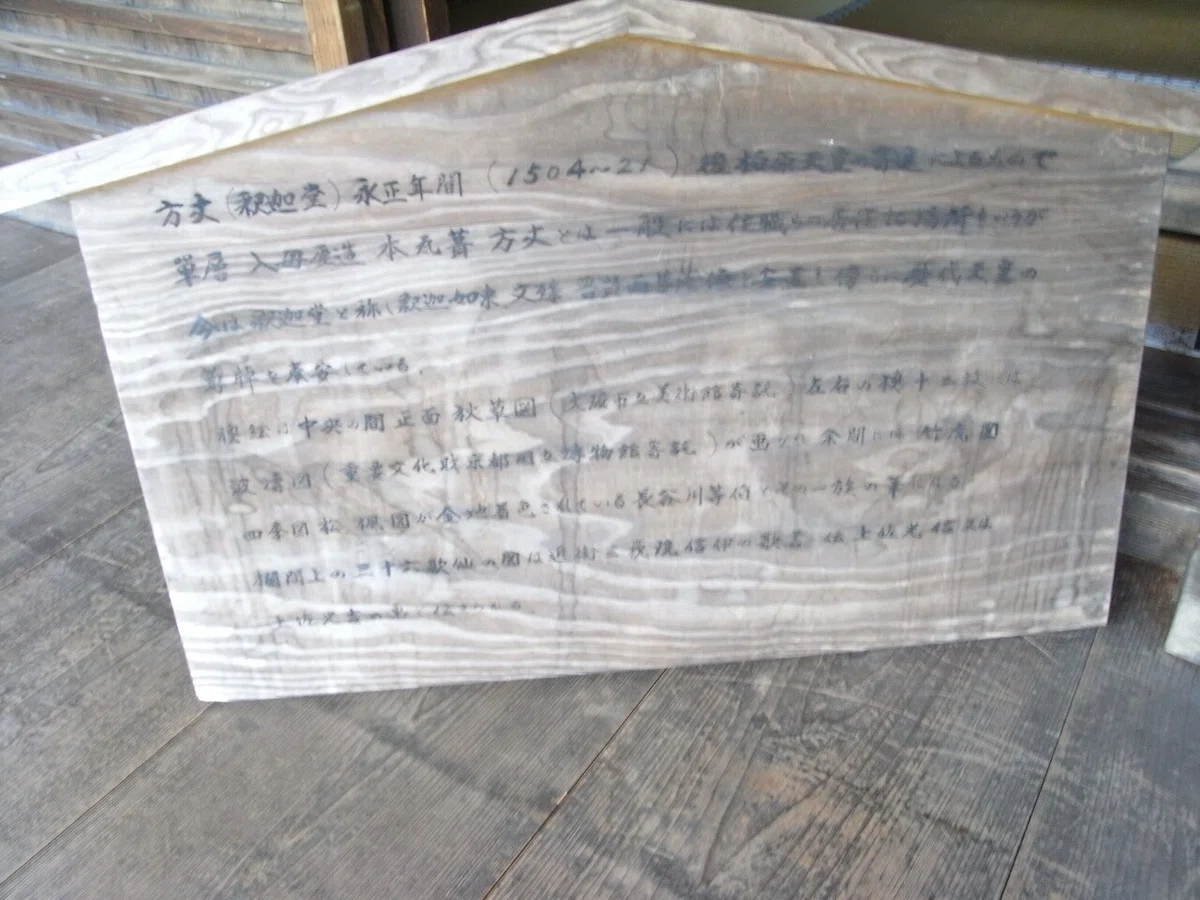 方丈(釈迦堂)永正年間(1504〜21)後柏原天皇の寄進によるもので
単層 入母屋造 本瓦葺 方丈とは一般には住職の
今は釈迦堂と称し釈迦如来 文殊 歴代天皇の
尊牌を奉安している。
襖絵は中央の間 正面 秋草図(大阪市立美術館寄託)左右の襖十二枚には
波濤図(重要文化財京都国立博物館寄託)が画かれ 余間には竹虎図
四季図 松 楓図が金地着色されている長谷川等伯とその一族の筆になる
欄間上の三十六歌仙の図は近衛 信伊の歌書 伝土佐光信